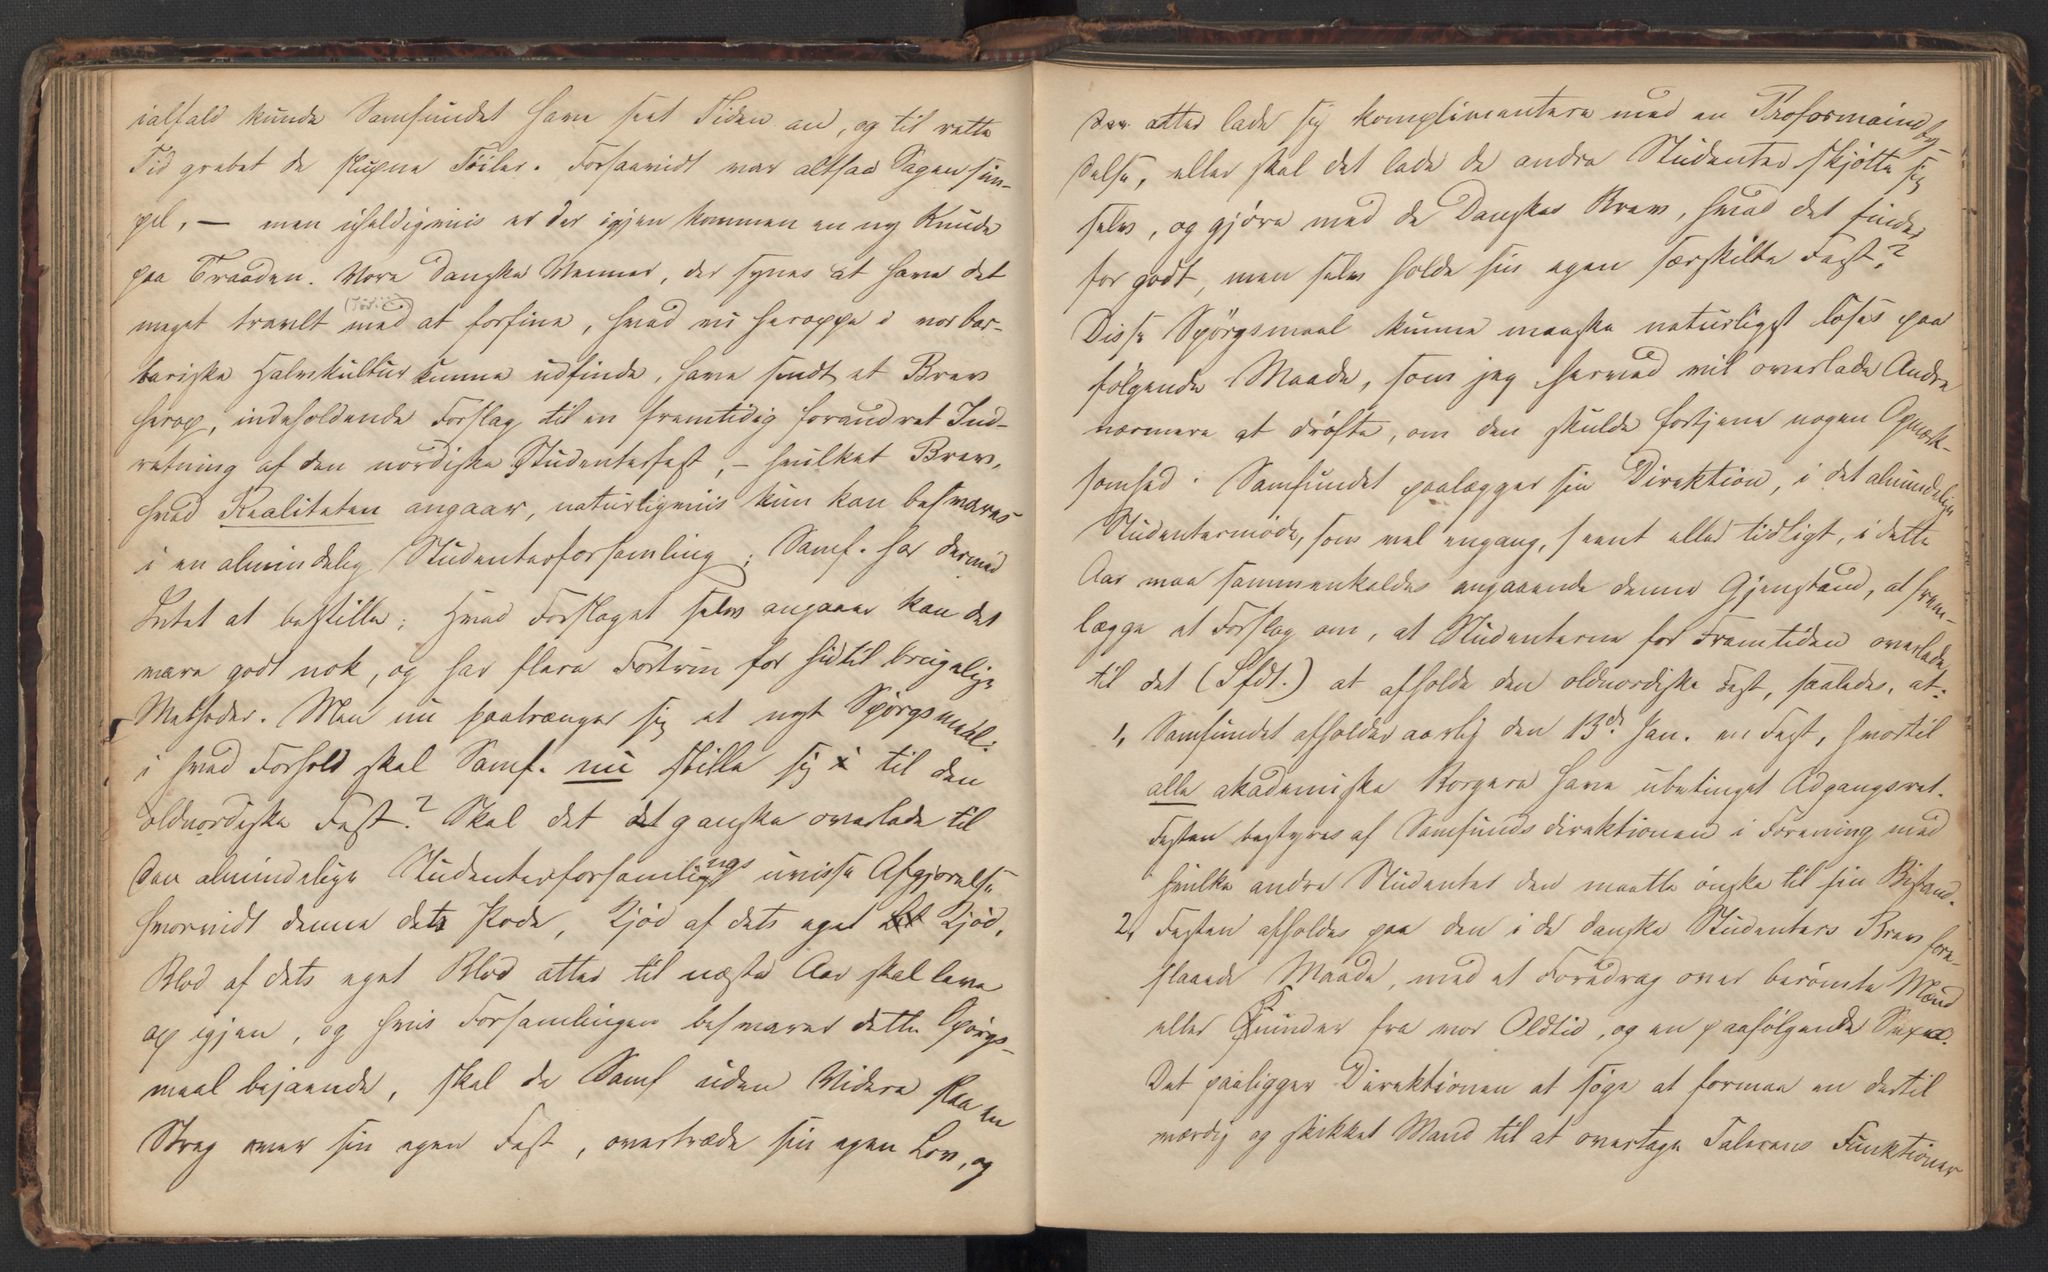 ialfald kunde Samfundet have seet Tiden an, og til rette
Tid grebet de slupne Töiler. Forsaavidt var altsaa Sagen sim-
pel, — men uheldigviis er der igjen kommen en ny Knude
paa Traaden. Vore Danske Venner, der synes at have det
meget travlt med at forfine, hvad vi heroppe i vor bar-
bariske Halvkultur kunne udfinde, have sendt et Brev
herop, indeholdende Forslag til en fremtidig forandret Ind-
retning af den nordiske Studenterfest, — hvilket Brev,
hvad Realiteten angaar, naturligviis kun kan besvares
i en almindelig Studenterforsamling; Samf. har dermed
Intet at bestille; Hvad Forslaget selv angaaer kan det
være godt nok, og har flere Fortrin for hidtil brugelige
Methoder. Men nu paatrænger sig et nyt Spörgsmaal:
i hvad Forhold skal Samf. nu stille sig til den
oldnordiske Fest? Skal det ganske overlade til
den almindelige Studenterforsamlings uvisse Afgjörelse
hvorvidt denne dets Pode, Kjöd af dets eget Kjöd,
Blod af dets eget Blod atter til næste Aar skal leve
op igjen, og hvis Forsamlingen besvarer dette Spörgs-
maal bejaende, skal da Samf uden Videre slaa en
Streg over sin egen Fest, overtræde sin egen Lov, og
atter lade sig komplimentere med en Proformaindby-
delse, eller skal det lade de andre Studenter skjötte sig
selv, og gjöre med de Danskes Brev, hvad det findes
for godt, men selv holde sin egen særskilte Fest?
Disse Spörgsmaal kunne maaske naturligst löses paa
fölgende Maade, som jeg herved vil overlade Andre
nærmere at dröfte, om den skulde fortjene nogen Opmærk-
somhed: Samfundet paalægger sin Direktion, i det almindelige
Studentermöde, som vel engang, seent eller tidligt, i dette
Aar maa sammenkaldes angaaende denne Gjenstand, at frem-
lægge et Forslag om, at Studenterne for Fremtiden overlade
til det (Sfdt.) at afholde den oldnordiske Fest, saaledes, at:
1, Samfundet afholder aarlig den 13de Jan. en Fest, hvortil
alle akademiske Borgere have ubetinget Adgangsret.
Festen bestyres af Samfundsdirektionen i Forening med
hvilke andre Studenter den maatte önske til sin Bistand.
2, Festen afholdes paa den i de danske Studenters Brev fore-
slaaede Maade, med et Foredrag over berömte Mænd
eller Qvinder fra vor Oldtid, og en paafölgende Sexa.
Det paaligger Direktionen at söge at formaa en dertil
værdig og skikket Mand til at overtage Talerens Funktioner